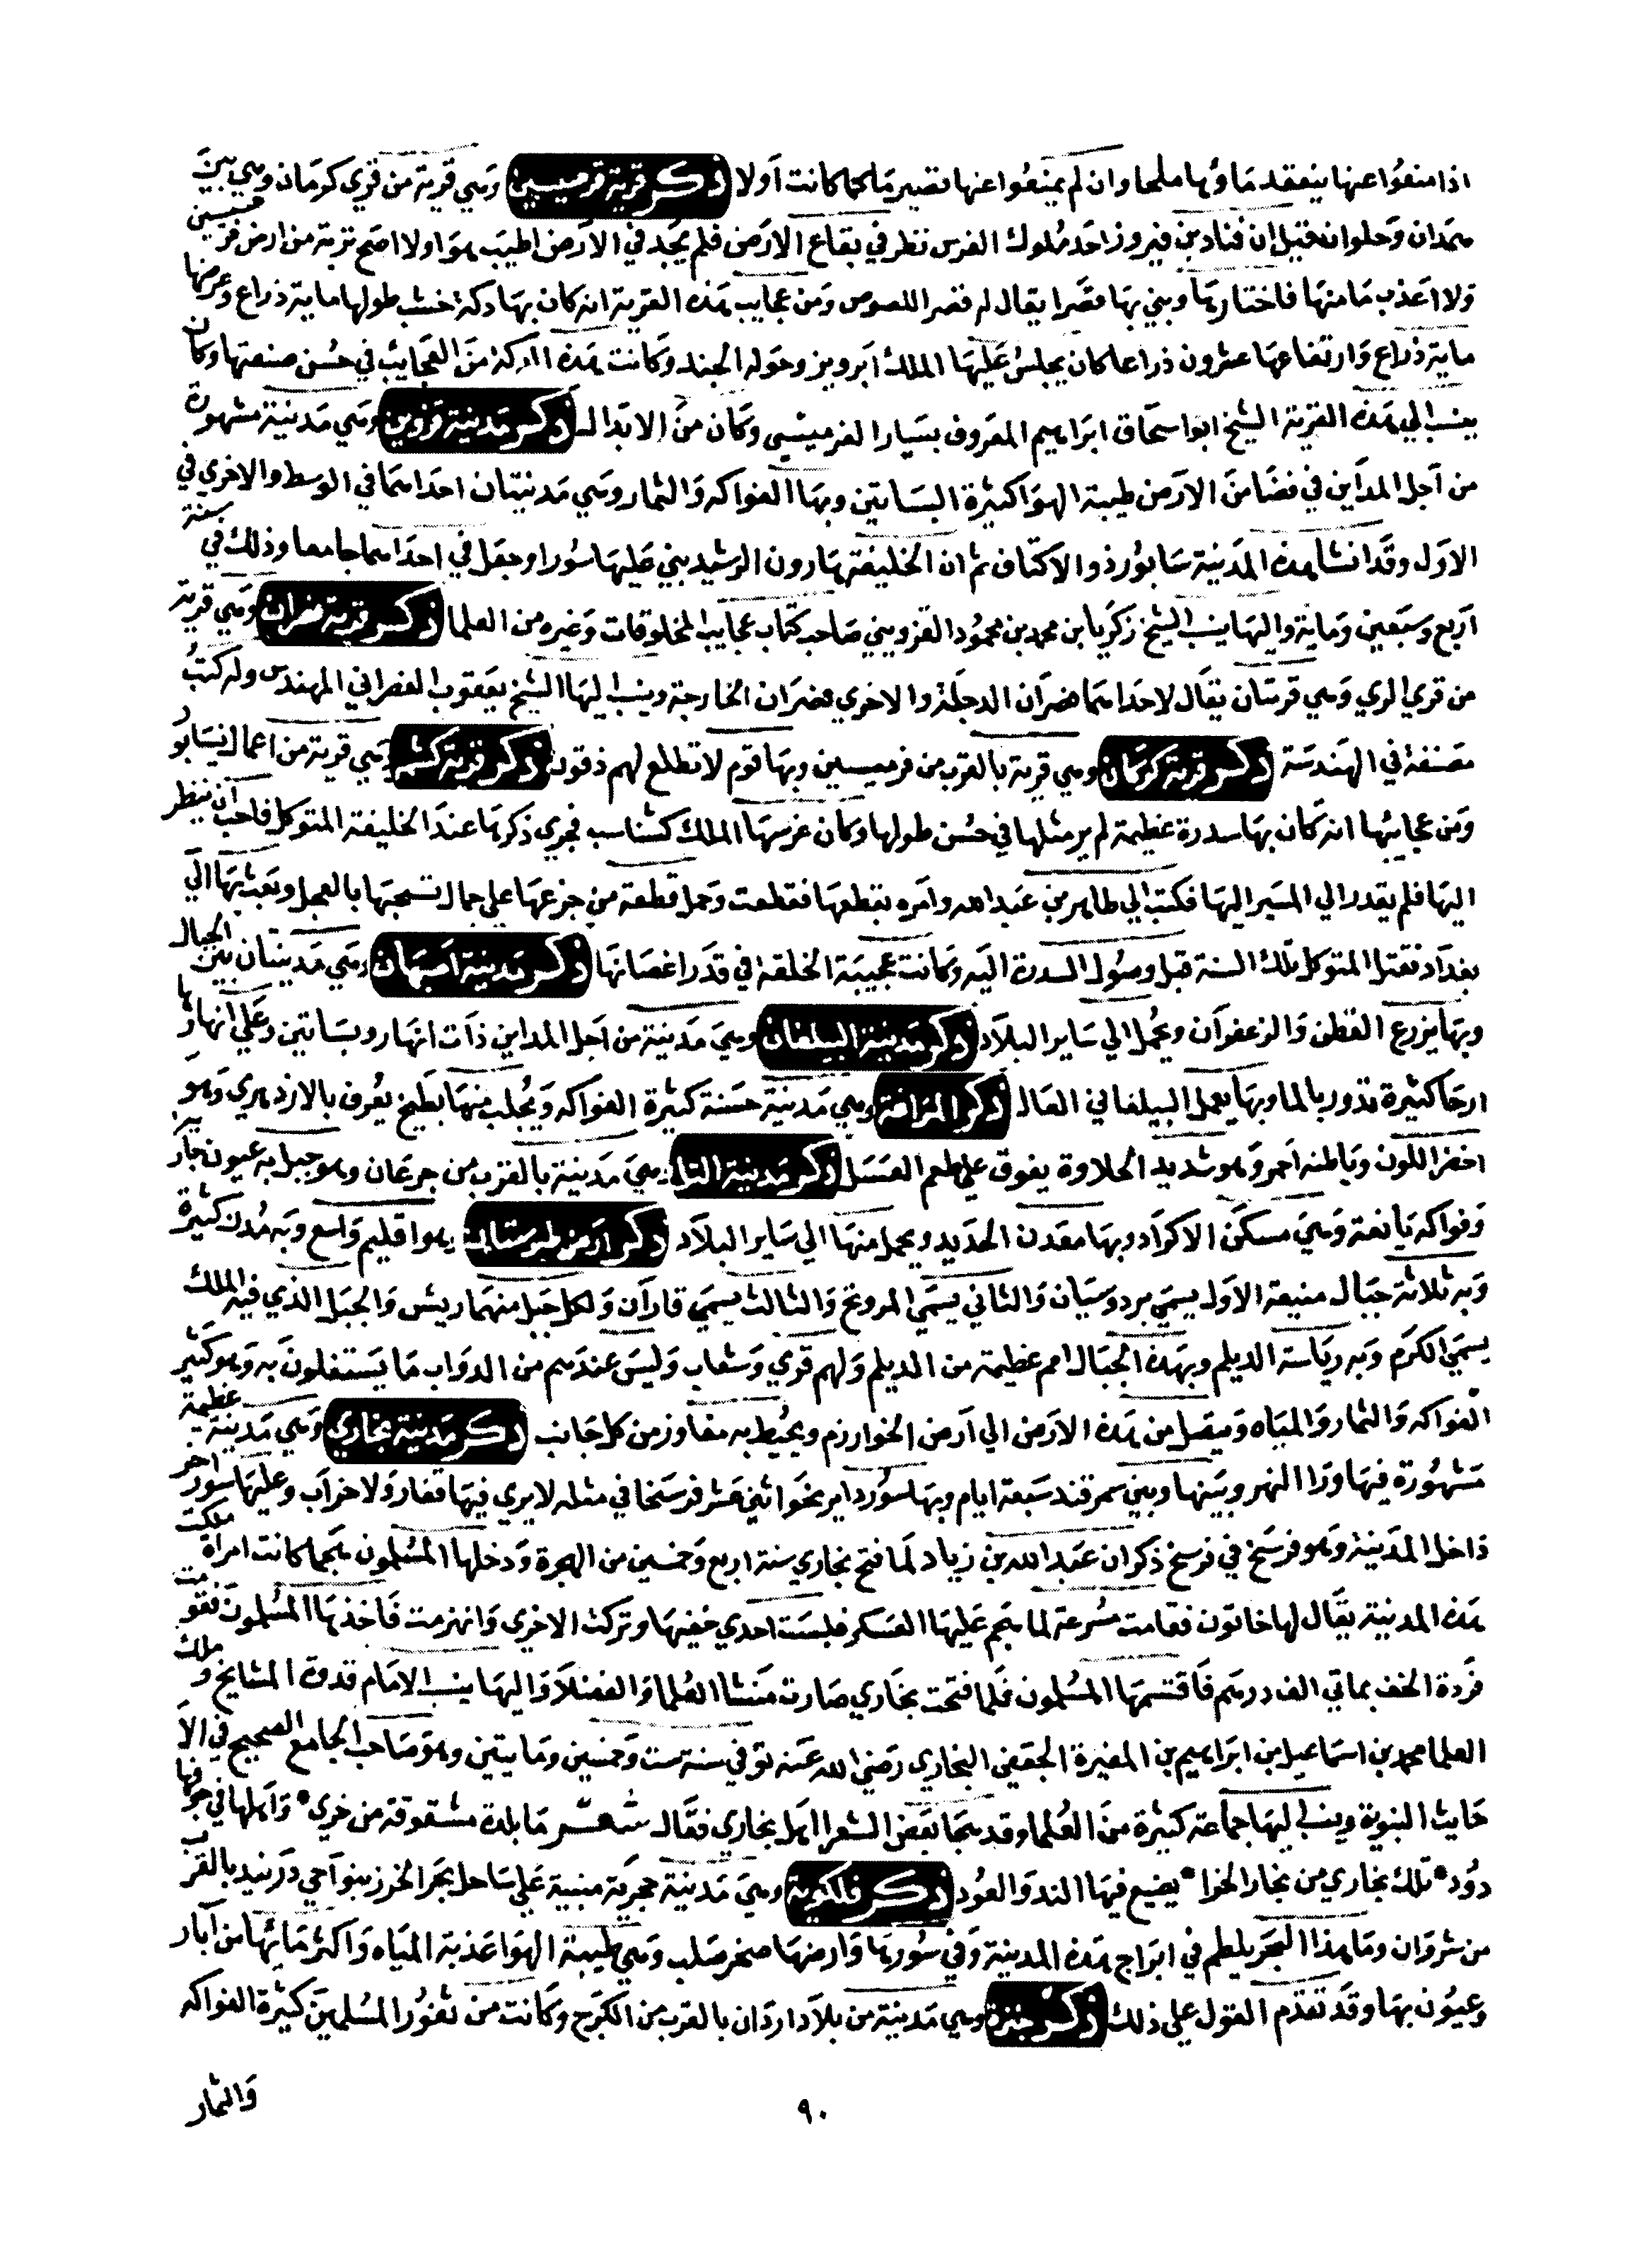 اذا منعوا عنها ينعقد ماؤها ملحا وان لم يمنعوا عنها تصير ماكما كانت أولا ذكر قرية قرميسين وهي قرية من قري كرمان وهي بين
همدان وحلوان فقيل ان قنادبن فيروز احد ملوك الفرس نظر في بقاع الارض فلم يجد في الارض اطيب هوا ولا اصح تربة من ارض قرميسين
ولا اعذب مامنها فاختارها وبني بها قصرا يقال له قصر اللصوص ومن عجايب هذه القرية انه كان بها دكة خشب طولها ماية ذراع وعرضها
ماية ذراع وارتفاعها عشرون ذراعا كان يجلس عليها الملك ابرويز وحوله الجند وكانت هذه الدكة من العجايب في حسن صنعتها وكان
ينسب الي هذه القرية الشيخ ابو اسحاق ابراهيم المعروف بسيار القرميسي وكان من الابدال ذكر مدينة قزوين وهي مدينة مشهورة
من اجل المداين في فضا من الارض طيبة الهوا كثيرة البساتين وبها الفواكه والثمار وهي مدينتان احداهما في الوسط والاخري في
الاول وقد انشا هذه المدينة سابور ذو الاكتاف ثم ان الخليفة هارون الرشيد بني عليها سورا وجعل في احداهما جامعا وذلك في سنة
اربع وسبعين وماية واليها ينسب الشيخ زكريا بن محمد بن محمود القزويني صاحب كتاب عجايب المخلوقات وغيره من العلما ذكر قرية غضران وهي قرية
من قري الري وهي قريتان يقال لاحداهما هضران الدجلة والاخري هضران الخارجة وينسب اليها الشيخ يعقوب الغضراني المهندس وله كتب
مصنفة في الهندسة ذكر قرية كرمان وهي قرية بالقرب من قرميسين وبها قوم لا تطلع لهم ذقون ذكر قرية كشم وهي قرية من اعمال نيسابور
ومن عجايبها انه كان بها سدرة عظيمة لم ير مثلها في حسن طولها وكان غرسها الملك كشتاسب فجري ذكرها عند الخليفة المتوكل فاحب ان ينظر
اليها فلم يقدر الي المسير اليها فكتب الي طاهر بن عبدالله وامره بقطعها فقطعت وحمل قطعة من جزعها علي جمال تسحبها بالعجل وبعث بها الي
بغداد فقتل المتوكل تلك السنة قبل وصول السدرة اليه وكانت عجيبة الخلقة في قدر اغصانها ذكر مدينة اصبهان وهي مدينتان بين الجبال
وبها يزرع القطن والزعفران ويحمل الي ساير البلاد ذكر مدينة البيلقان وهي مدينة من اجل المداين ذات انهار وبساتين وعلي انهارها
ارحا كثيرة تدور بالما وبها يعمل البيلقاني العال ذكر المراغة وهي مدينة حسنة كثيرة الفواكه ويجلب منها بطيخ يعرف بالازدهري وهو
اخضر اللون وباطنه احمر وهو شديد الحلاوة يفوق علي طعم العسل ذكر مدينة التار وهي مدينة بالقرب من جرعان وهو جبل به عيون جارية
وفواكه يانعة وهي مسكن الاكراد وبها معدن الحديد ويحمل منها الي ساير البلاد ذكر ارض طبرستان وهو اقليم واسع وبه مدن كثيرة
وبه ثلاثة جبال منيعة الاول يسمي بردوسيان والثاني يسمي المرونج والثالث يسمي قاران ولكل جبل منهما ريش والجبل الذي فيه الملك
يسمي الكرم وبه رياسة الديلم وبهذه الجبال امم عظيمة من الديلم ولهم قري وشعاب وليس عندهم من الدواب ما يستغلون به وهو كثير
الفواكه والثمار والمياه ويتصل من هذه الارض الي ارض الخوارزم ويحيط به مفاوز من كل جانب ذكر مدينة بخاري وهي مدينة عظيمة
مشهورة فيها ورا النهر وبينها وبين سمرقند سبعة ايام وبها سور داير نحو اثني عشر فرسخا في مثله لا يري فيها قفار ولا خراب وعليها سور اخر
داخل المدينة وهو فرسخ في فرسخ ذكر ان عبدالله بن زياد لما فتح بخاري سنة اربع وخمسين من الهجرة ودخلها المسلمون هجما كانت امراة ملكت
هذه المدينة يقال لها خاتون فقامت مسرعة لما هجم عليها العسكر فلبست احدي خفيها وتركت الاخري وانهزمت فاخذها المسلمون فقومت
فردة الخف بماتي الف درهم فاقتسمها المسلمون فلما فتحت بخاري صارت منشا العلما والفضلا واليها ينسب الامام قدوة المشايخ وملك
العلما محمد بن اسماعيل بن ابراهيم بن المغيرة الجعفي البخاري رضي الله عنه توفي سنة ست وخمسين ومايتين وهو صاحب الجامع الصحيح في الا
حايث النبوية وينسب اليها جماعة كثيرة من العلما وقد هجا بعض الشعرا اهل بخاري فقال شعر ما بلدة مشقوقة من خري * واهلها في جوفها
دود * تلك بخاري من بخار الخرا * يضيع فيها الند والعود ذكر وهي مدينة حجرية منيبة علي ساحل بحر الخزر بنواحي دربنيد بالقرب
من شروان وما هذا البحر يلطم في ابراج هذه المدينة وفي سورها وارضها صخر صلب وهي طيبة الهوا عذبة المياه واكثر مائها من آبار
وعيون بها وقد تقدم القول علي ذلك ذكر جنزة وهي مدينة من بلاد اردان بالقرب من الكرج وكانت من ثغور المسلمين كثيرة الفواكه
والثمار
٩٠